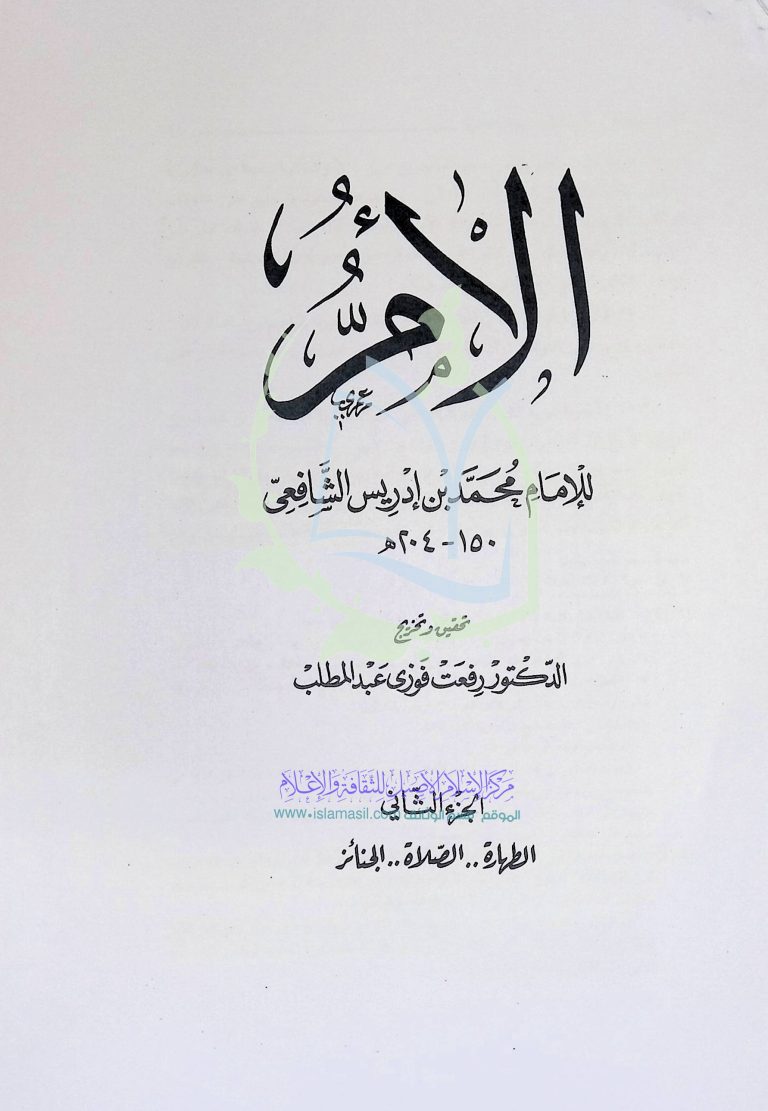 الأُمُّ
للإمَامِ مُحَمَّد بْن إدْرِيس الشَّافِعِىّ
١٥٠ - ٢٠٤ هـ
تحقيق وتخريج
الدّكتور رفعت فَوْزى عَبْد المطلب
مركز الإسلام الأصيل للثقافة والإعلام
الجزء الثَّاني
الموقع www.islamasil.com
الطهارة .. الصّلاة .. الجنائز